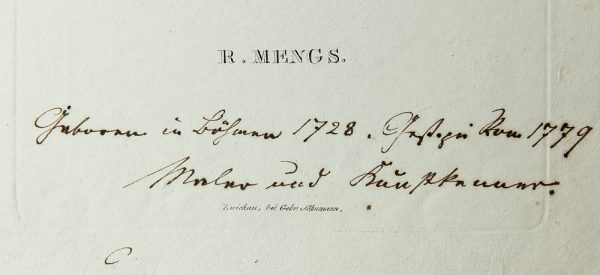 R. MENGS.
Geboren in Böhmen 1728. Gest. zu Rom 1779
Maler und Kunstkenner.
Zwickau, bei Gebr. Schumann.